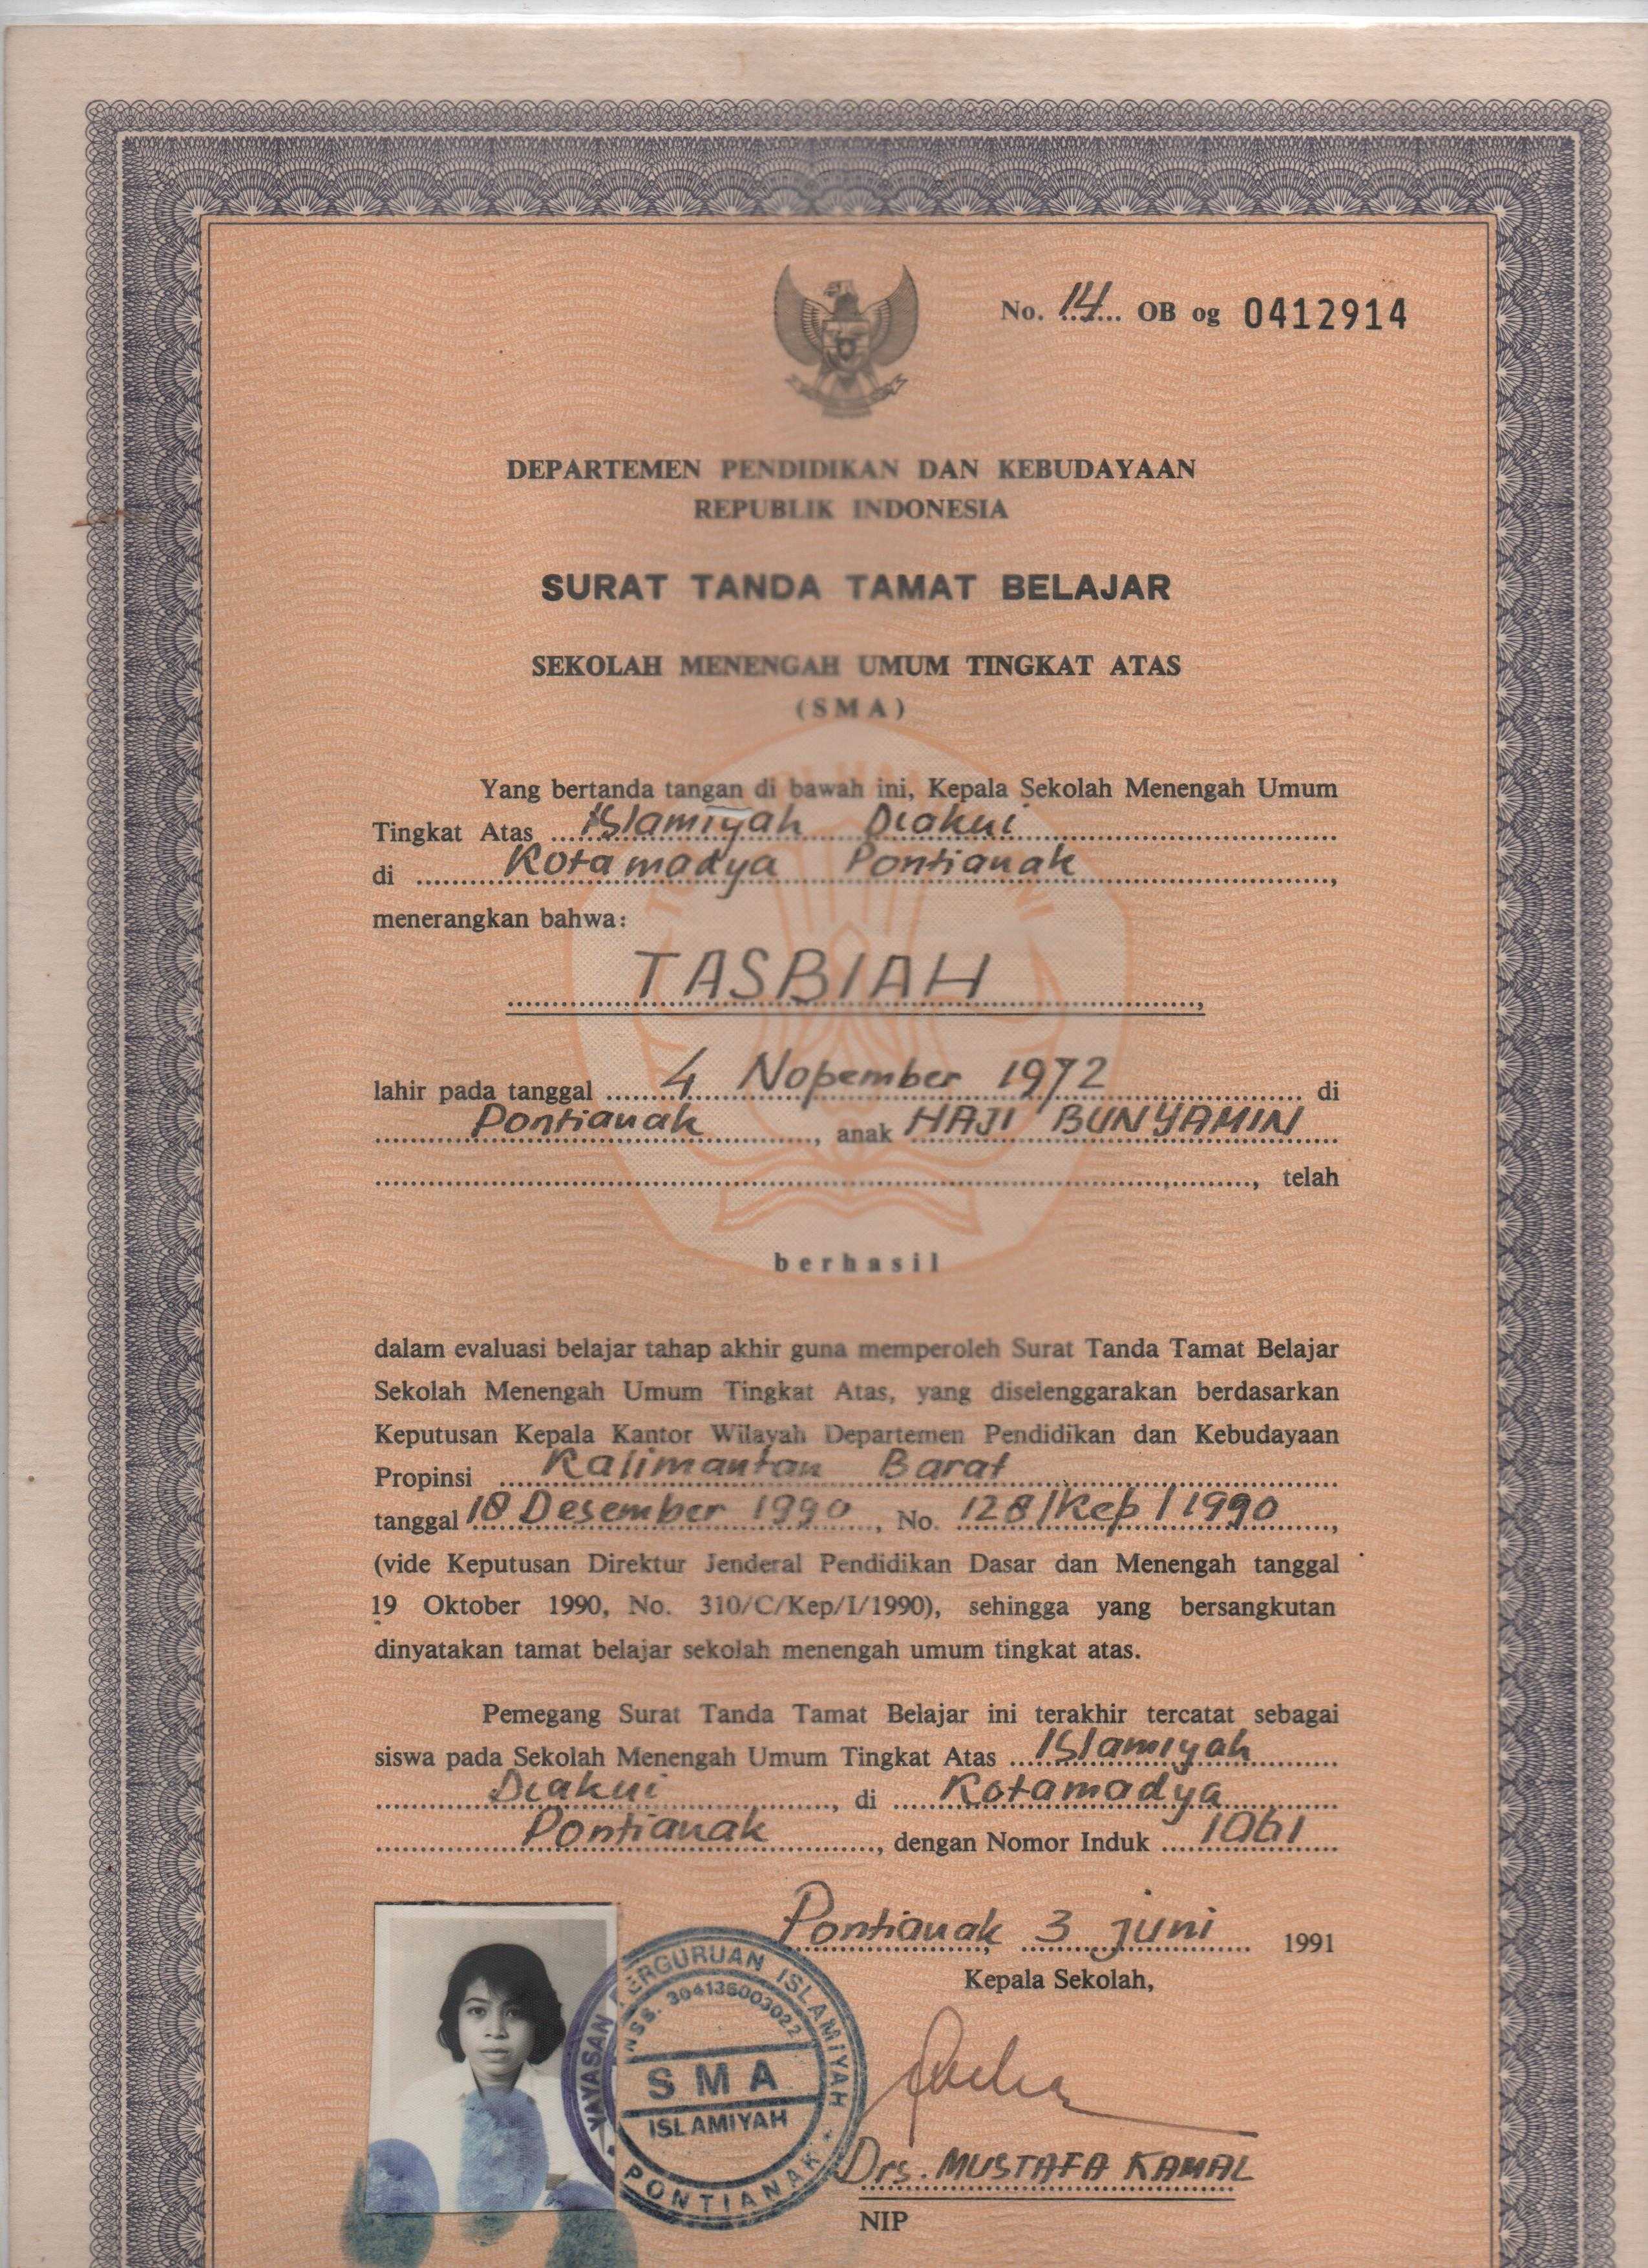 No. 14 OB og 0412914
DEPARTEMEN PENDIDIKAN DAN KEBUDAYAAN
REPUBLIK INDONESIA
SURAT TANDA TAMAT BELAJAR
SEKOLAH MENENGAH UMUM TINGKAT ATAS
(SMA)
Yang bertanda tangan di bawah ini, Kepala Sekolah Menengah Umum
Tingkat Atas Islamiyah Diakui
di Kotamadya Pontianak,
menerangkan bahwa:
TASBIAH,
lahir pada tanggal 4 Nopember 1972 di
Pontianak, anak HAJI BUNYAMIN
, telah
berhasil
dalam evaluasi belajar tahap akhir guna memperoleh Surat Tanda Tamat Belajar
Sekolah Menengah Umum Tingkat Atas, yang diselenggarakan berdasarkan
Keputusan Kepala Kantor Wilayah Departemen Pendidikan dan Kebudayaan
Propinsi Kalimantan Barat
tanggal 18 Desember 1990, No. 128/Kep/1990,
(vide Keputusan Direktur Jenderal Pendidikan Dasar dan Menengah tanggal
19 Oktober 1990, No. 310/C/Kep/I/1990), sehingga yang bersangkutan
dinyatakan tamat belajar sekolah menengah umum tingkat atas.
Pemegang Surat Tanda Tamat Belajar ini terakhir tercatat sebagai
siswa pada Sekolah Menengah Umum Tingkat Atas Islamiyah
Diakui, di Kotamadya
Pontianak, dengan Nomor Induk 1061
Pontianak, 3 juni 1991
Kepala Sekolah,
YAYASAN PERGURUAN ISLAMIYAH
NSS. 304136003022
SMA
ISLAMIYAH
PONTIANAK
Drs. MUSTAFA KAMAL
NIP